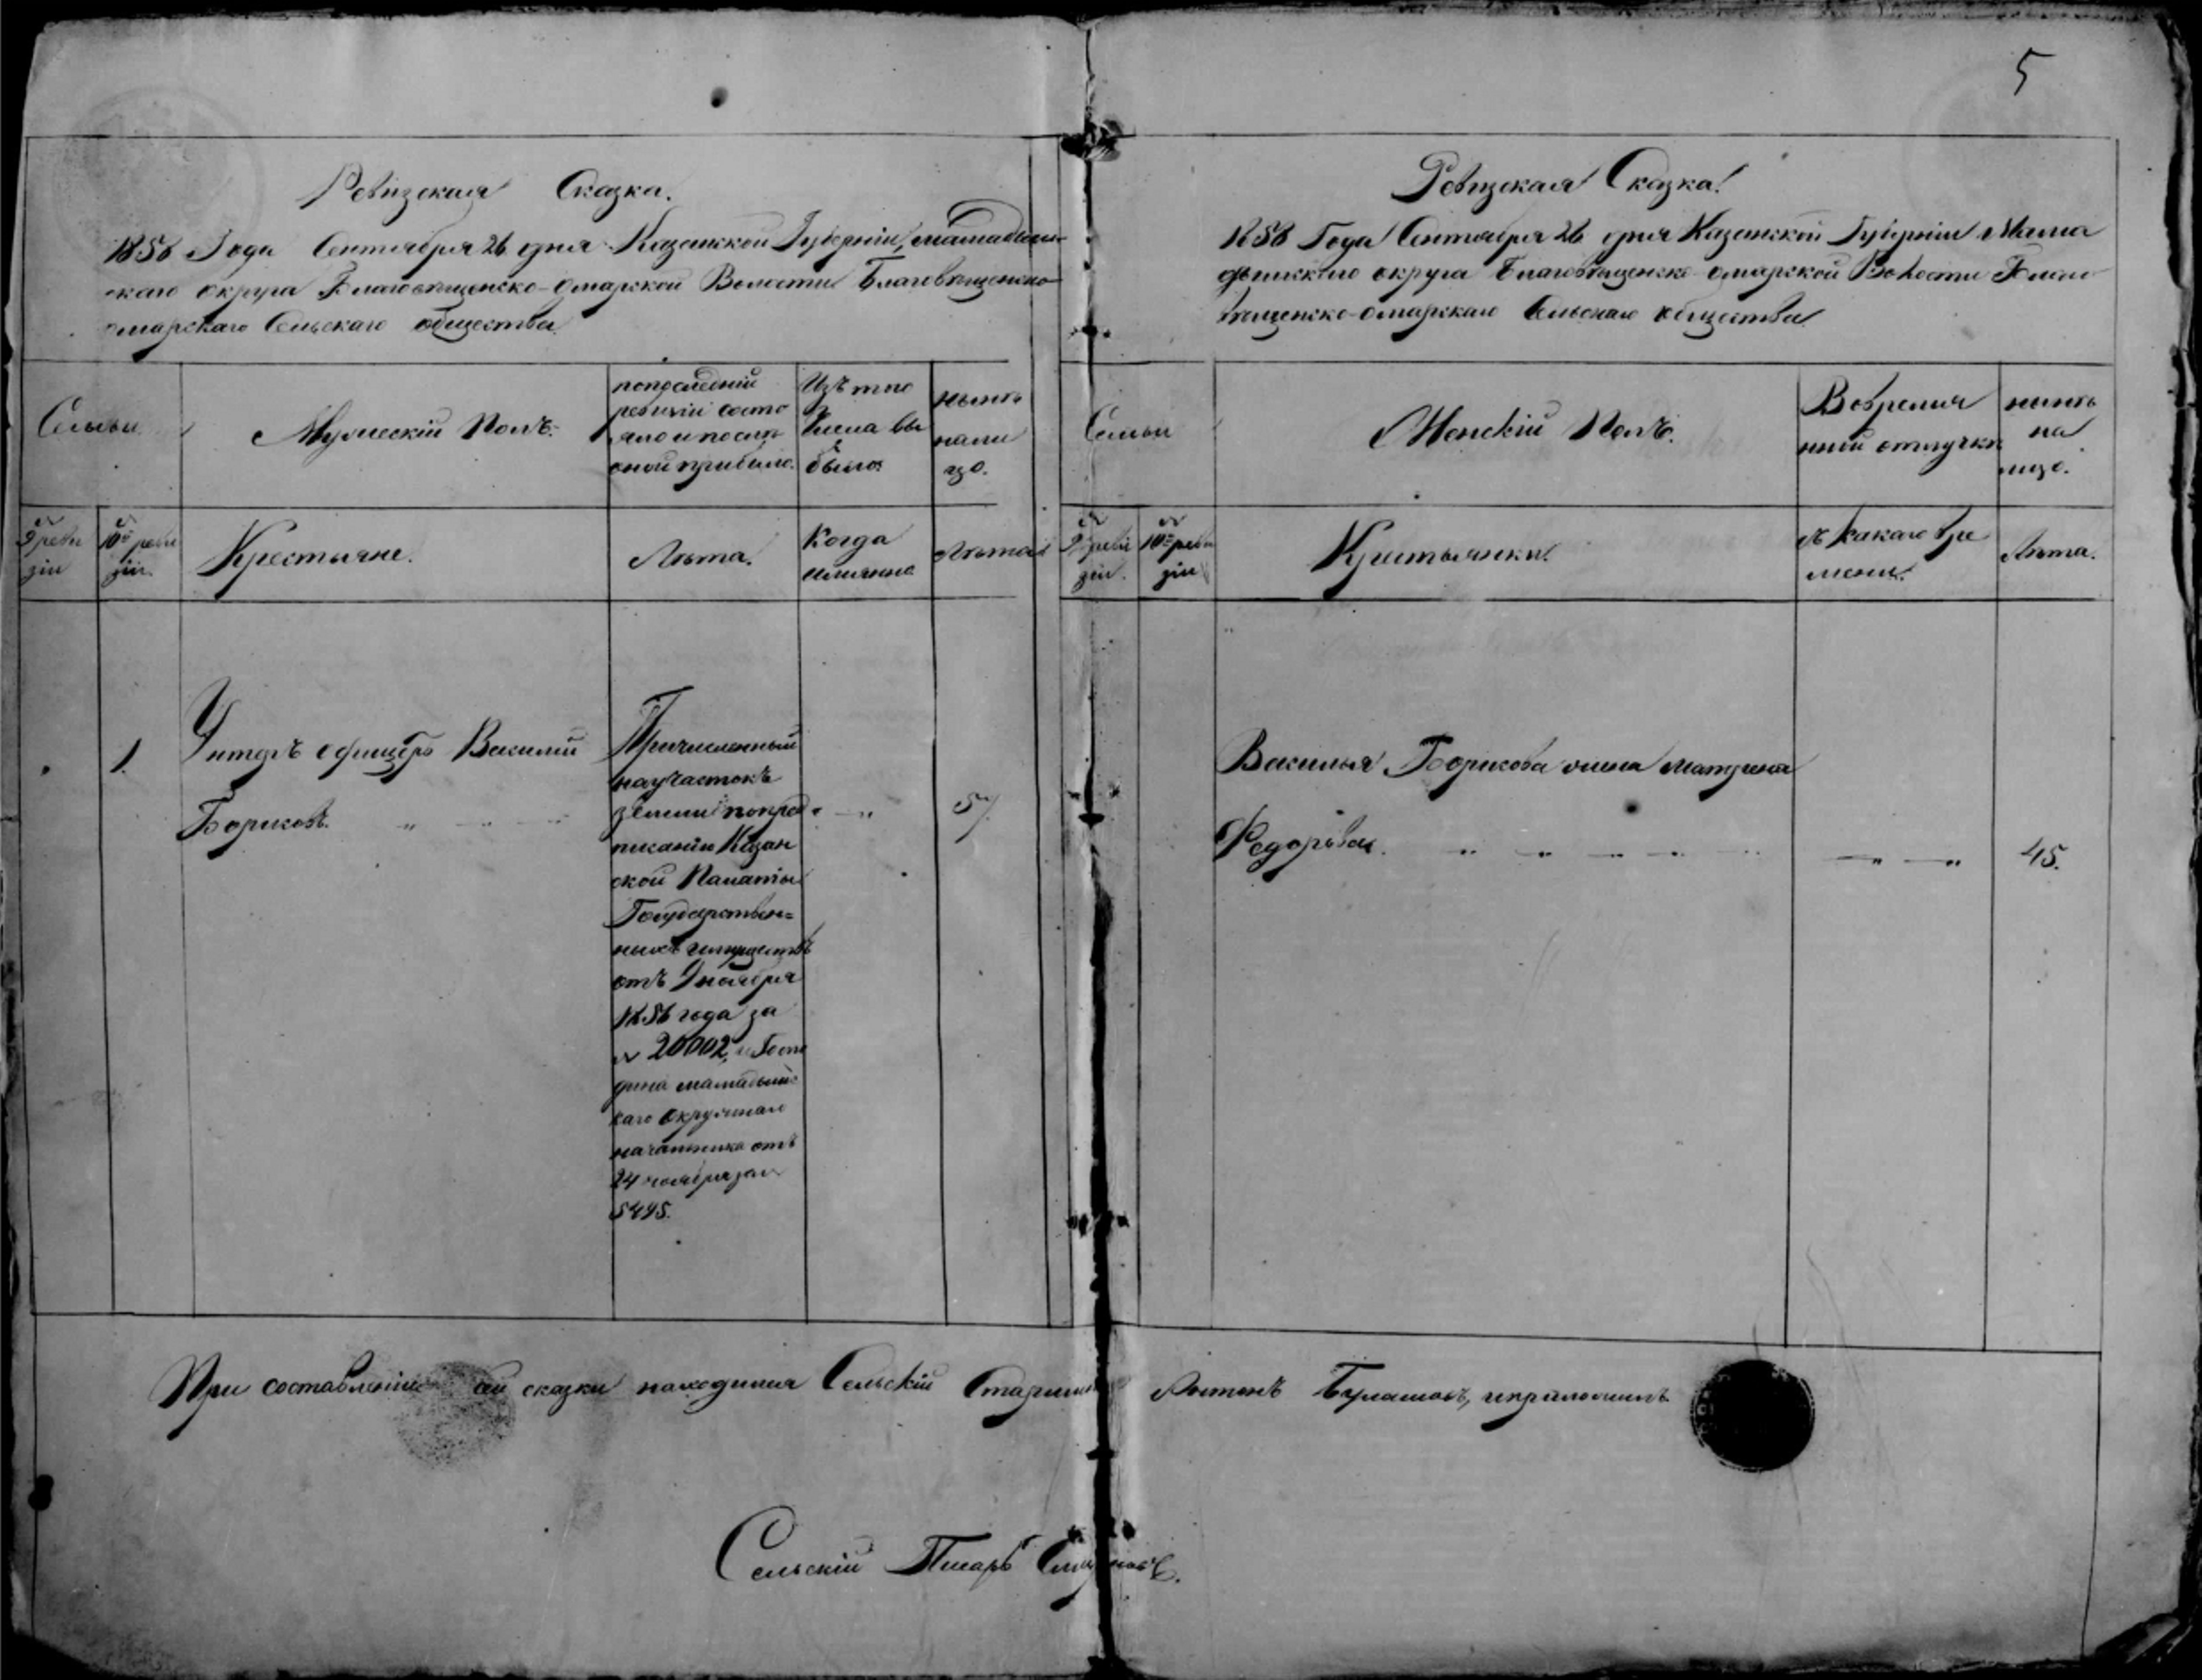 5
Ревизская Сказка.
1858 Года Сентября 26 дня Казанской Губерніи, мамадыш-
скаго округа Благовѣщенско-Омарской Волости Благовѣщенско-
омарскаго Сельскаго общества
Семьи
Мужескій Полъ.
по последній
ревизіи состо
яло и послѣ
оной прибыло.
Изъ того
числа вы
было
нынѣ
нали
цо.
9 реви
зіи
10й реви
зіи.
Крестьяне.
Лѣта.
Когда
именно
Лѣта
1.
Унтеръ офицеръ Василий
Бориков.
Причисленный
на участокъ
земли по пред
писанію Казан
ской Палаты
Государствен=
ныхъ имуществъ
отъ 9 ноября
1856 года за
№ 20002, и Госпо
дина мамадыш
каго Окружнаго
начальника отъ
24 ноября за №
5495.
57
Ревизская Сказка.
1858 Года Сентября 26 дня Казанской Губерніи Мама
дышскаго округа Благовѣщенско-Омарской Волости Благо
вѣщенско-Омарскаго Сельскаго общества
Семьи
Женскій Полъ.
Во время
ной отлучки
нынѣ
на
лицо.
9й реви
зіи.
10й реви
зіи
Крестьянки.
съ какаго вре
мени.
Лѣта.
Василья Борикова жена Матрена
Федорова.
45.
При составленіи сей сказки находился Сельскій Старшина Антонъ приложилъ
Сельскій Писарь